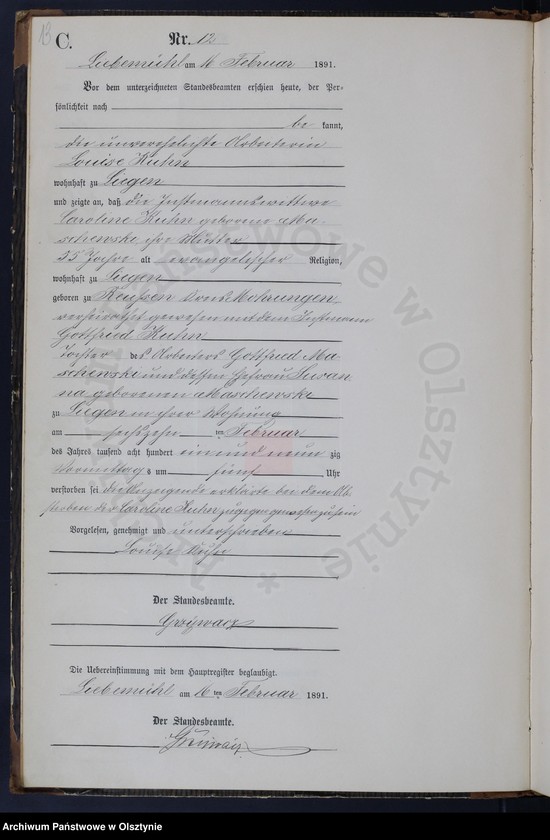 13
C.
Nr. 12
Liebemühl am 16 Februar 1891.
Vor dem unterzeichneten Standesbeamten erschien heute, der Per-
sönlichkeit nach
be kannt,
die unverehelichte Arbeiterin
Louise Kuhn
wohnhaft zu Liegen
und zeigte an, daß die Instmannswittwe
Caroline Kuhn geborene Ma-
schewske ihre Mutter
55 Jahre alt evangelischer Religion,
wohnhaft zu Liegen
geboren zu Reussen Kreis Mohrungen
verheirathet gewesen mit dem Instmann
Gottfried Kuhn
Tochter des Arbeiters Gottfried Ma-
schewski und dessen Ehefrau Susan
na geborenen Maschewske
zu Liegen in ihrer Wohnung
am sechszehn ten Februar
des Jahres tausend acht hundert ein und neun zig
Vormittag s um fünf Uhr
verstorben sei die Anzeigende erklärte bei dem Ab-
sterben der Caroline Kuhn zugegen gewesen zu sein
Vorgelesen, genehmigt und unterschrieben
Louise Kuhn
Der Standesbeamte.
Die Uebereinstimmung mit dem Hauptregister beglaubigt.
Liebemühl am 16 ten Februar 1891.
Der Standesbeamte.
Archiwum Państwowe w Olsztynie *
Archiwum Państwowe w Olsztynie